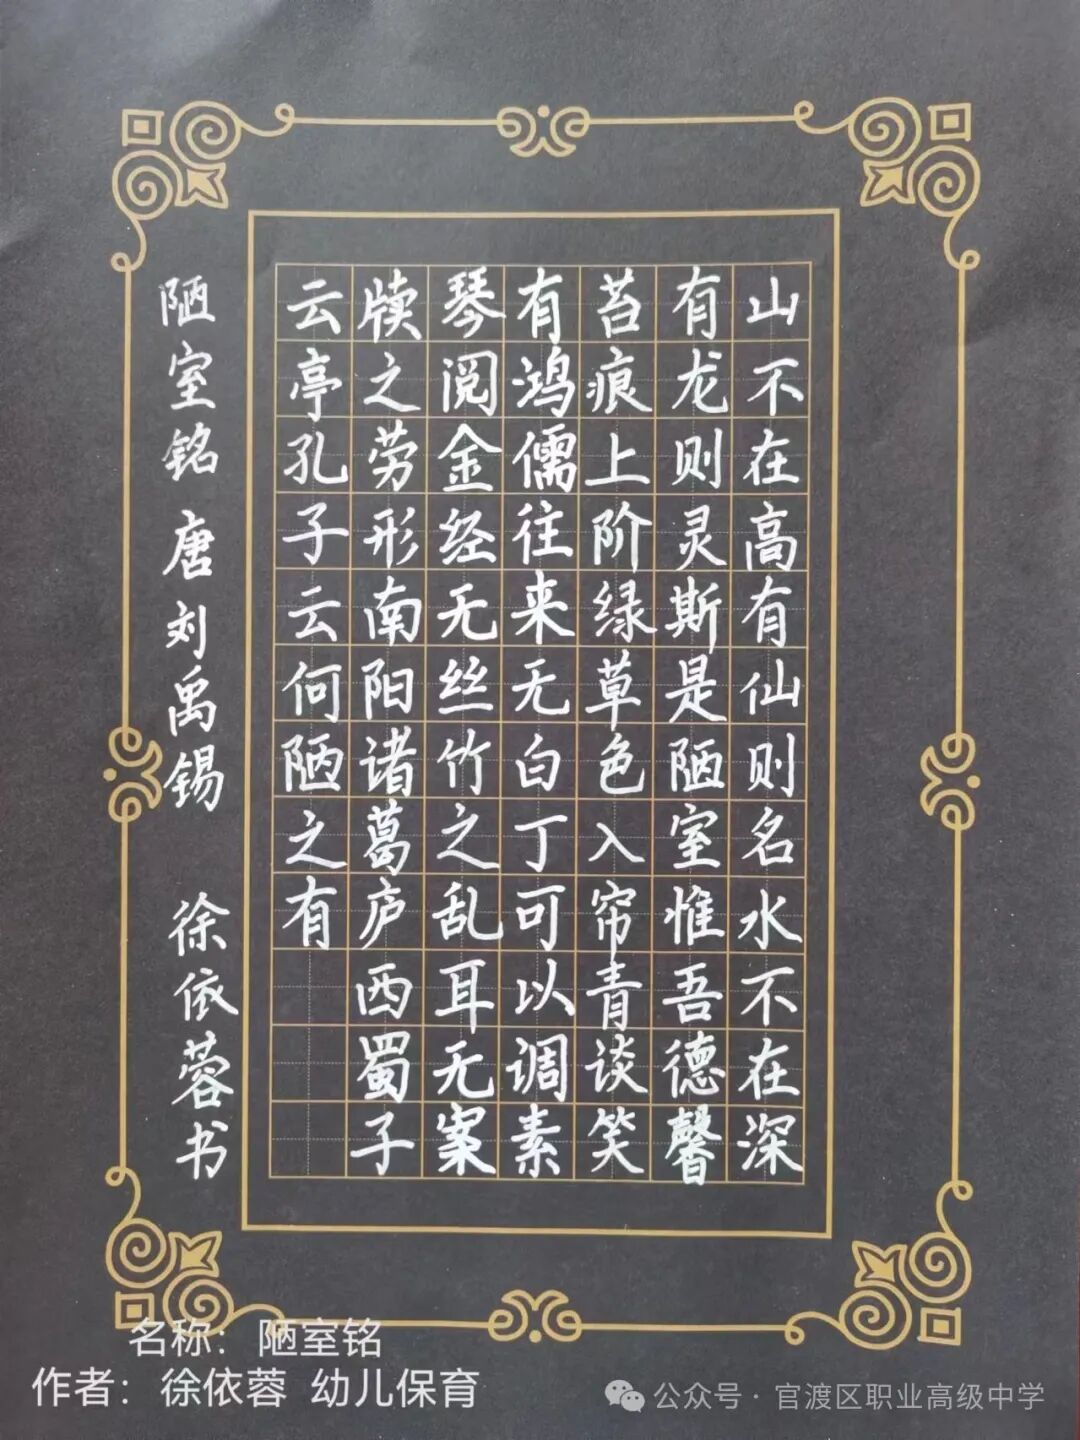 山不在高有仙则名水不在深
有龙则灵斯是陋室惟吾德馨
苔痕上阶绿草色入帘青谈笑
有鸿儒往来无白丁可以调素
琴阅金经无丝竹之乱耳无案
牍之劳形南阳诸葛庐西蜀子
云亭孔子云何陋之有
陋室铭 唐 刘禹锡 徐依蓉书
名称：陋室铭
作者：徐依蓉 幼儿保育
公众号·官渡区职业高级中学